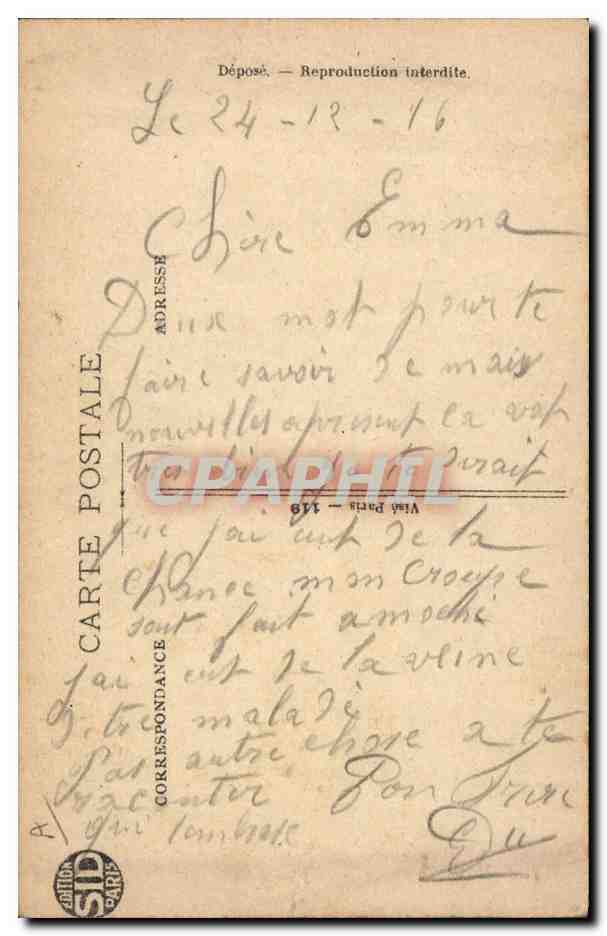 Déposé. — Reproduction interdite.
Le 24 - 12 - 16
Chère Emma
Deux mot pour te
faire savoir de mais
nouvelles apresent ca vat
tres bien je te dirait
que j'ai eut de la
chance mon croupe
sont fait amoché
j'ai eut de la veine
d'etre malade
Pas autre chose a te
raconter Ton frere
qui t'embrase
CARTE POSTALE
ADRESSE
CORRESPONDANCE
Visé Paris — 119
CPAPHIL
EDITION
SID
PARIS